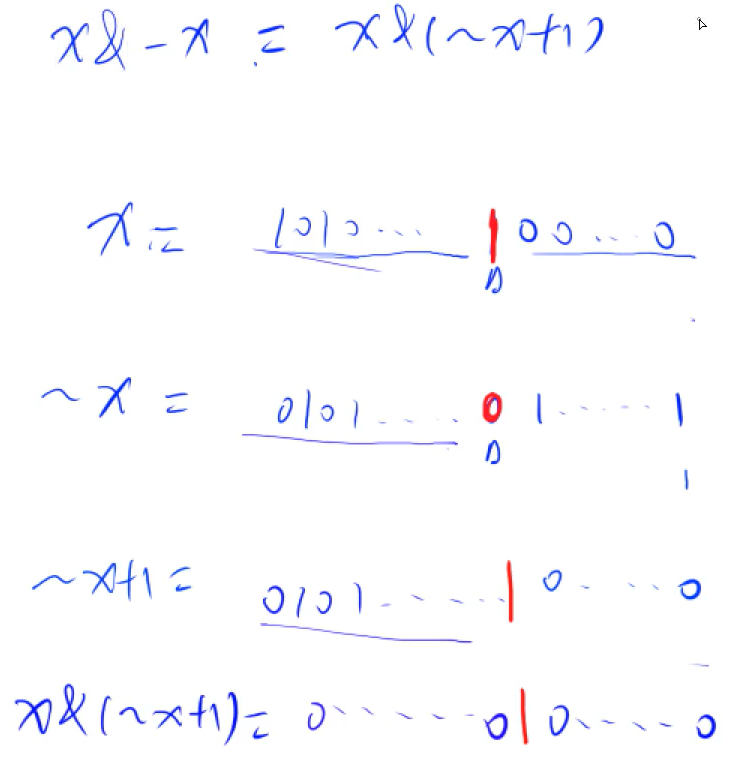 x&-x = x&(~x+1)
x= 1010... 1 00...0
~x = 0101.... 0 1......1
1
~x+1= 0101...... 1 0.....0
x&(~x+1)= 0......0 1 0.....0